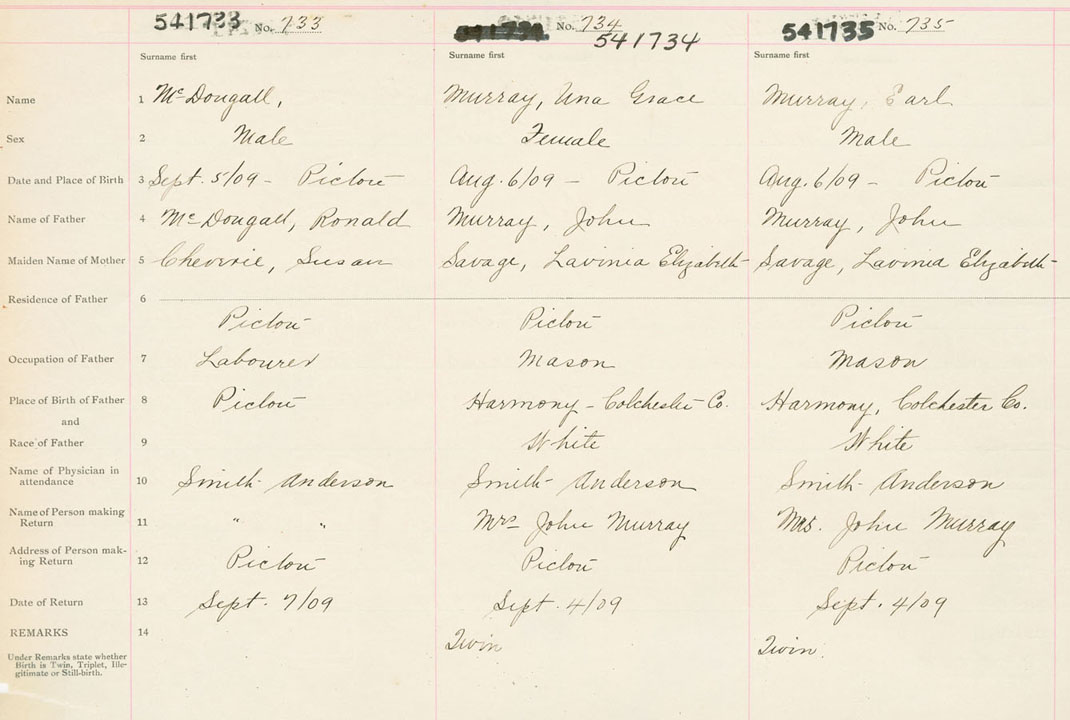 541733 No. 733
No. 734
541734
541735 No. 735
Surname first Surname first Surname first
Name 1 McDougall, Murray, Una Grace Murray, Earl
Sex 2 Male Female Male
Date and Place of Birth 3 Sept. 5/09 - Pictou Aug. 6/09 - Pictou Aug. 6/09 - Pictou
Name of Father 4 McDougall, Ronald Murray, John Murray, John
Maiden Name of Mother 5 Chevirie, Susan Savage, Lavinia Elizabeth Savage, Lavinia Elizabeth
Residence of Father 6
Pictou Pictou Pictou
Occupation of Father 7 Labourer Mason Mason
Place of Birth of Father 8 Pictou Harmony - Colchester Co. Harmony, Colchester Co.
and
Race of Father 9 White White
Name of Physician in
attendance 10 Smith Anderson Smith Anderson Smith Anderson
Name of Person making
Return 11 " " Mrs John Murray Mrs. John Murray
Address of Person mak-
ing Return 12 Pictou Pictou Pictou
Date of Return 13 Sept. 7/09 Sept. 4/09 Sept. 4/09
REMARKS 14 Twin Twin.
Under Remarks state whether
Birth is Twin, Triplet, Ille-
gitimate or Still-birth.